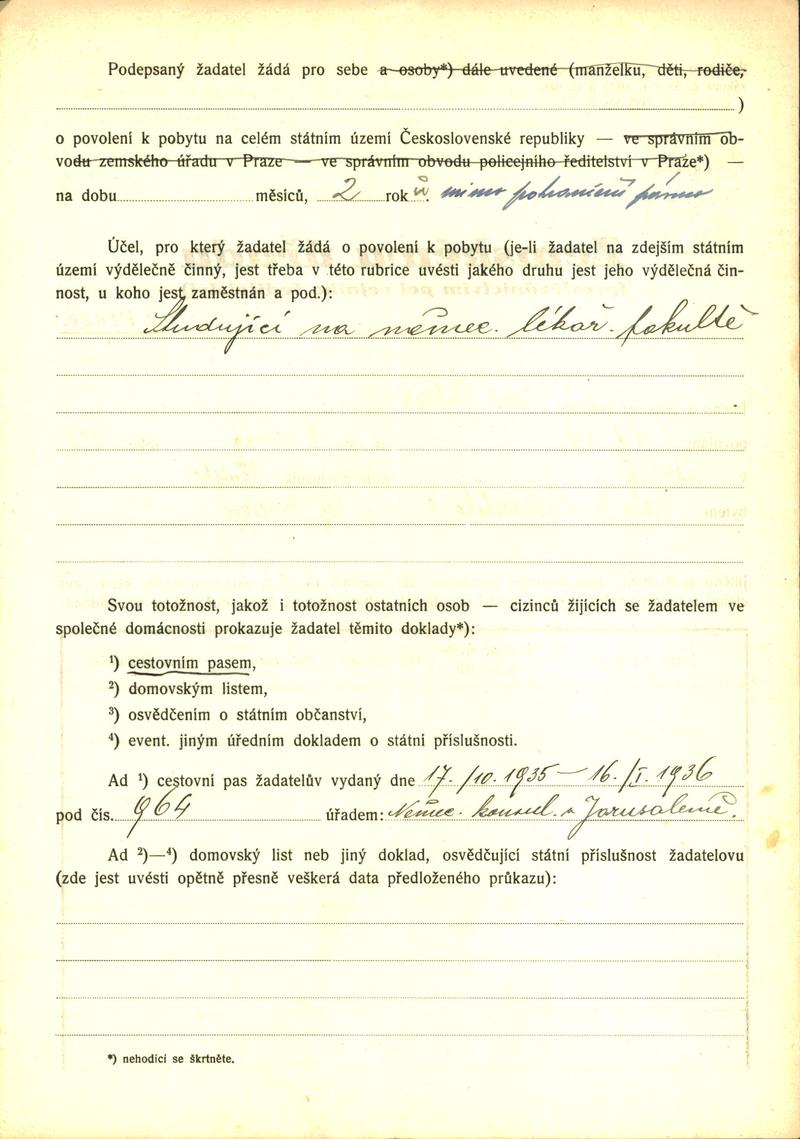 Podepsaný žadatel žádá pro sebe a osoby*) dále uvedené (manželku, děti, rodiče,
)
o povolení k pobytu na celém státním území Československé republiky — ve správním ob-
vodu zemského úřadu v Praze — ve správním obvodu policejního ředitelství v Praze*) —
na dobu měsíců, 2 rok ů. mimo pohraniční pásmo
Účel, pro který žadatel žádá o povolení k pobytu (je-li žadatel na zdejším státním
území výdělečně činný, jest třeba v této rubrice uvésti jakého druhu jest jeho výdělečná čin-
nost, u koho jest zaměstnán a pod.):
Studující na němec. lékař. fakultě
Svou totožnost, jakož i totožnost ostatních osob — cizinců žijících se žadatelem ve
společné domácnosti prokazuje žadatel těmito doklady*):
¹) cestovním pasem,
²) domovským listem,
³) osvědčením o státním občanství,
⁴) event. jiným úředním dokladem o státní příslušnosti.
Ad ¹) cestovní pas žadatelův vydaný dne 17./10. 1935 — 16./I. 1936
pod čís. 964 úřadem: Němec. konsul. v Jerusalemě.
Ad ²)—⁴) domovský list neb jiný doklad, osvědčující státní příslušnost žadatelovu
(zde jest uvésti opětně přesně veškerá data předloženého průkazu):
*) nehodící se škrtněte.